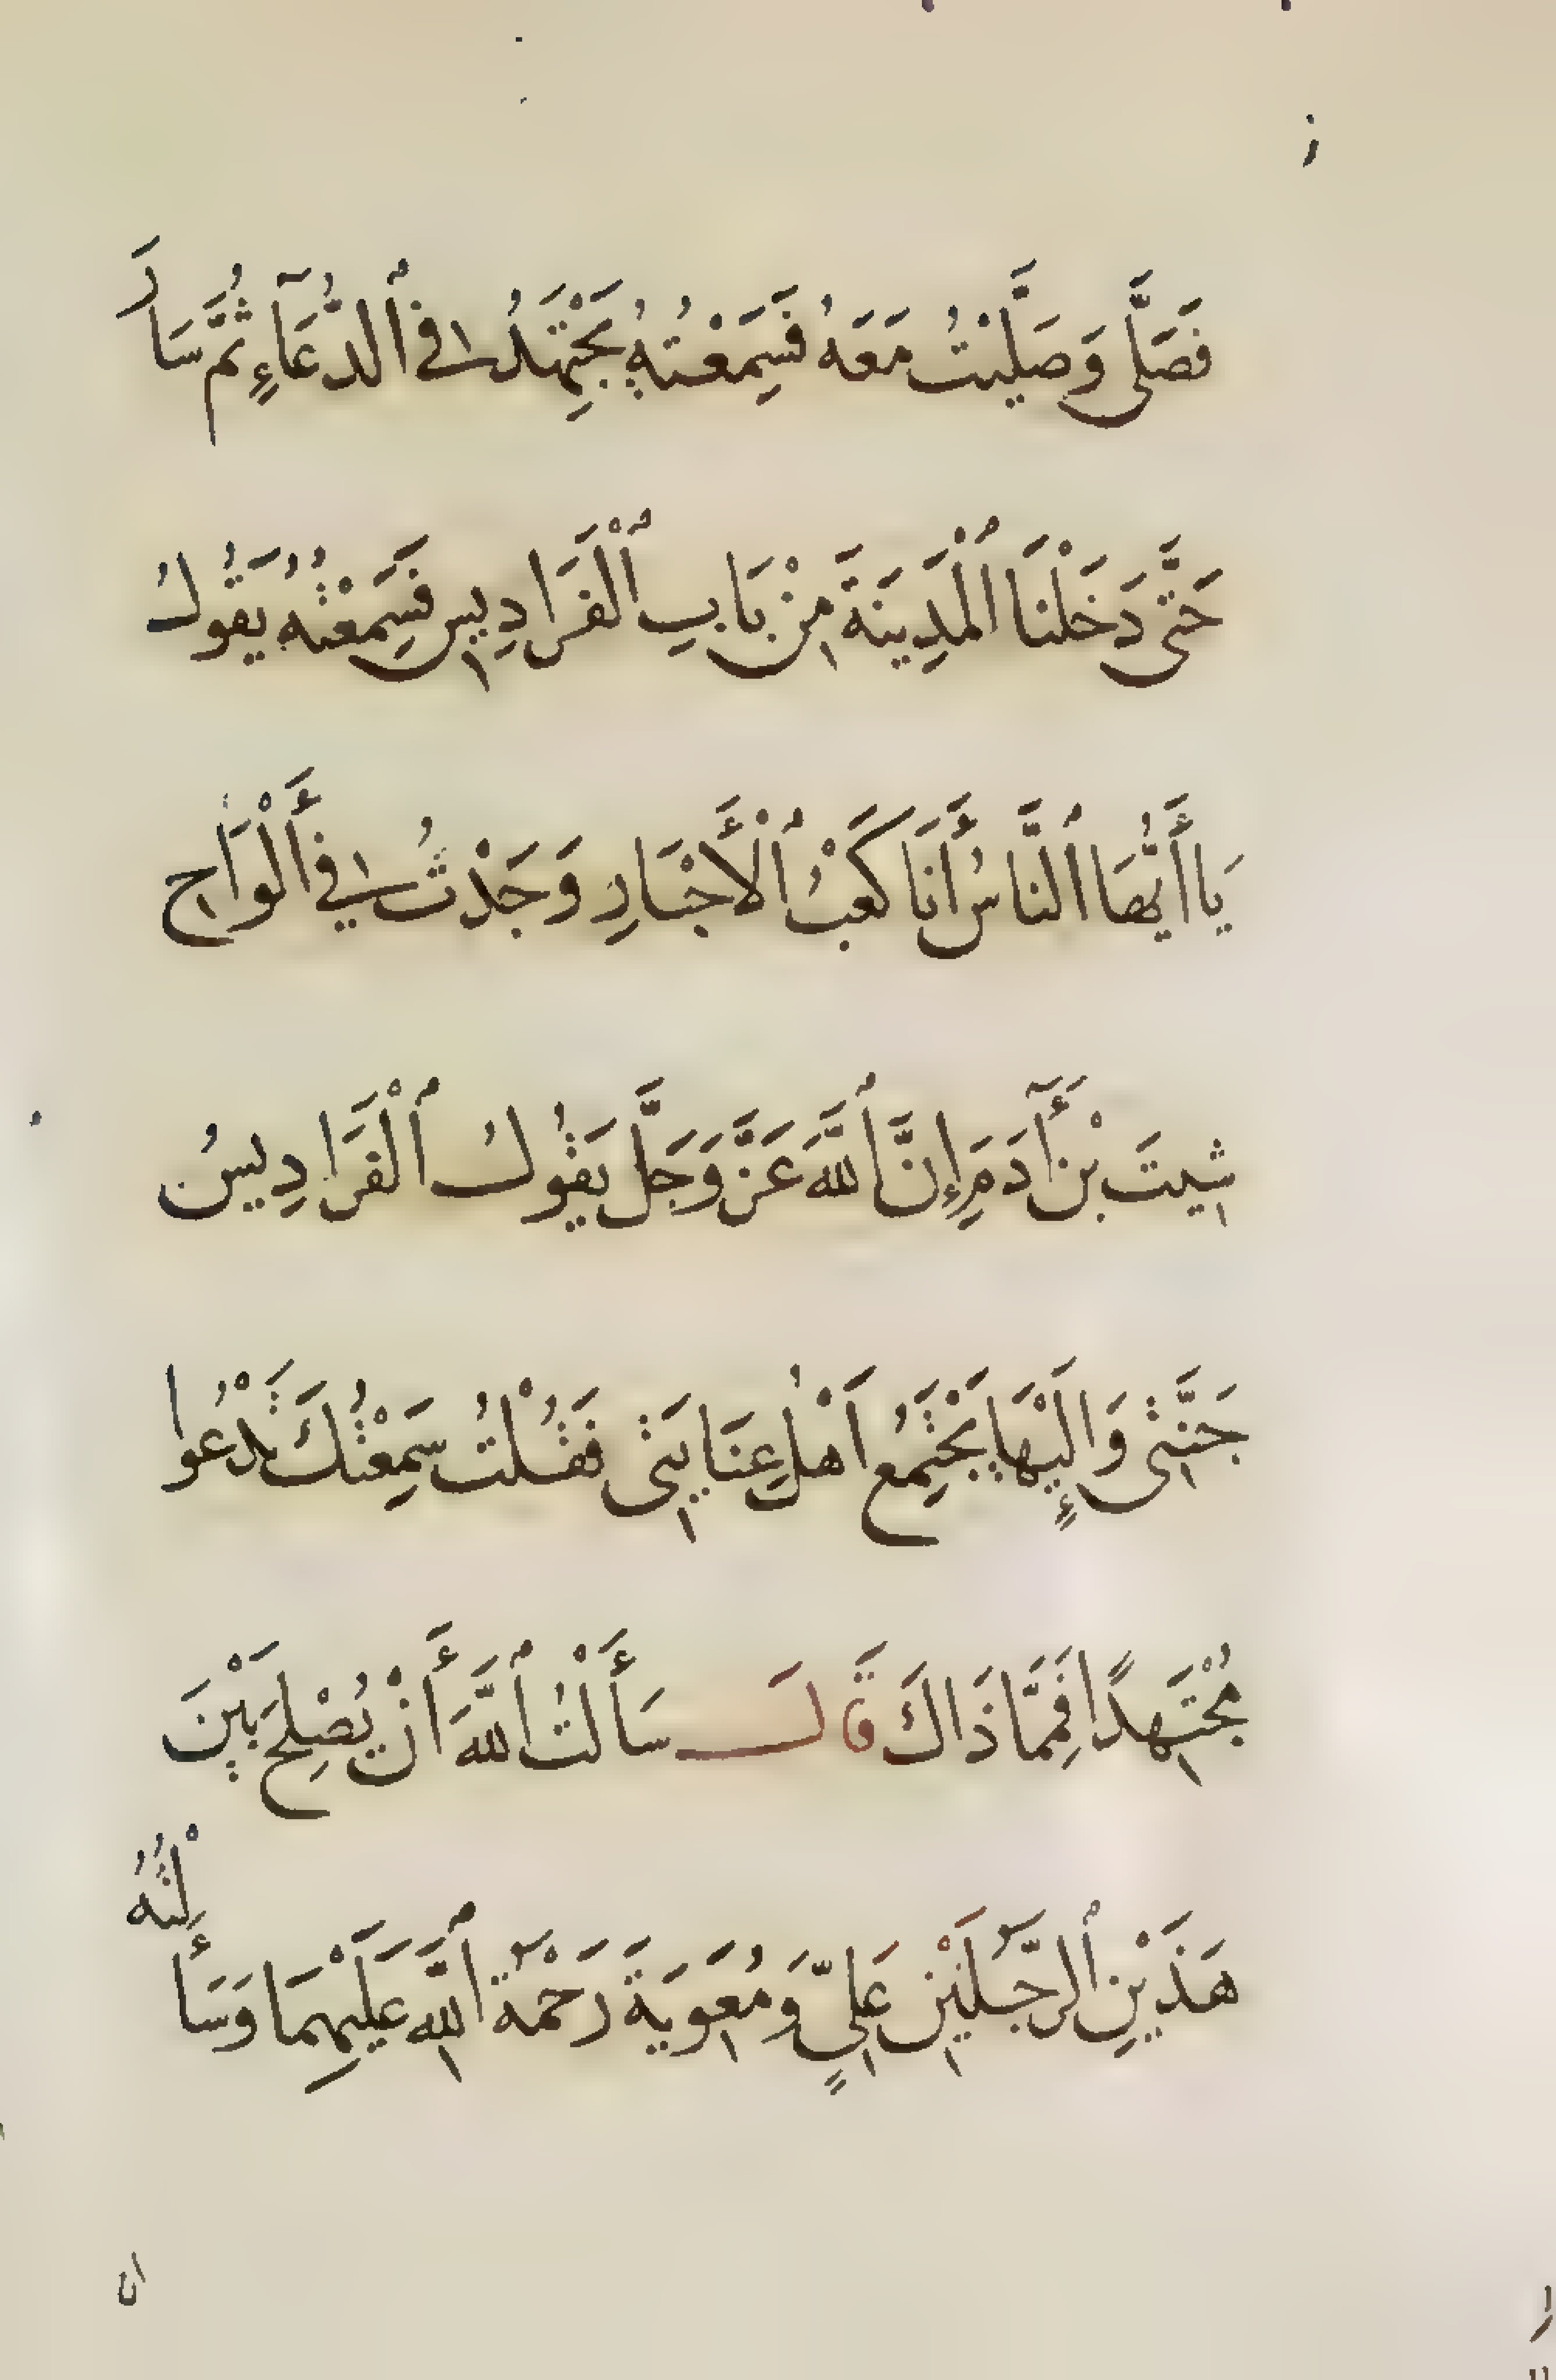 فَصَلَّى وَصَلَّيْتُ مَعَهُ فَسَمِعْتُهُ يَجْتَهِدُ فِي ٱلدُّعَآءِ ثُمَّ سَارَ
حَتَّى دَخَلْنَا ٱلْمَدِينَةَ مِنْ بَابِ ٱلْفَرَادِيسِ فَسَمِعْتُهُ يَقُولُ
يَا أَيُّهَا ٱلنَّاسُ أَنَا كَعْبُ ٱلْأَحْبَارِ وَجَدْتُ فِي أَلْوَاحِ
شِيتَ بْنِ أَٓدَمَ إِنَّ ٱللَّهَ عَزَّ وَجَلَّ يَقُولُ ٱلْفَرَادِيسُ
جَنَّتِي وَإِلَيْهَا يَجْتَمِعُ اَهْلُ عِنَايَتِي فَقُلْتُ سَمِعْتُكَ تَدْعُوا
مُجْتَهِدًا فَمِمَّا ذَاكَ قَالَ سَأَلْتُ ٱللَّهَ أَنْ يُصْلِحَ بَيْنَ
هَذَيْنِ ٱلرَّجُلَيْنِ عَلِيٍّ وَمُعَوِيَةَ رَحْمَةُ ٱللَّهِ عَلَيْهِمَا وَسَأَلْتُهُ
ان